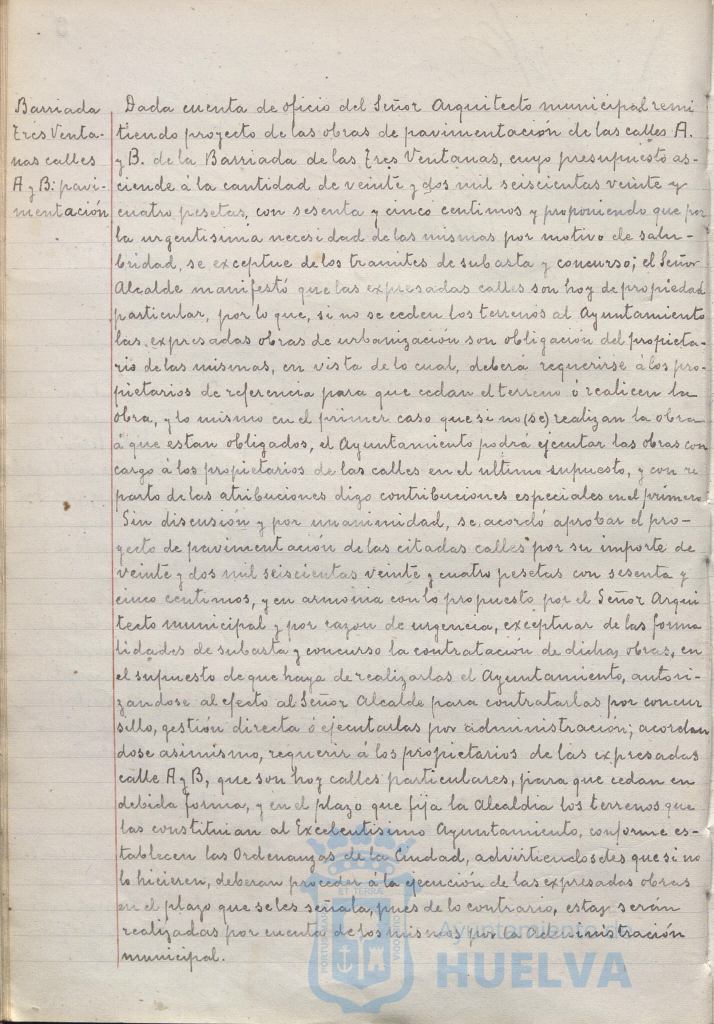 Barriada
Tres Venta-
nas calles
A y B: pavi-
mentación
Dada cuenta de oficio del Señor Arquitecto municipal remi
tiendo proyecto de las obras de pavimentación de las calles A.
y B. de la Barriada de las Tres Ventanas, cuyo presupuesto as-
ciende á la cantidad de veinte y dos mil seiscientas veinte y
cuatro pesetas, con sesenta y cinco centimos y proponiendo que por
la urgentisima necesidad de las mismas por motivo de salu-
bridad, se exceptue de los tramites de subasta y concurso; el Señor
Alcalde manifestó que las expresadas calles son hoy de propiedad
particular, por lo que, si no se ceden los terrenos al Ayuntamiento
las expresadas obras de urbanización son obligación del propieta-
rio de las mismas, en vista de lo cual, deberá requerirse á los pro-
pietarios de referencia para que cedan el terreno ó realicen la
obra, y lo mismo en el primer caso que si no (se) realizan la obra
á que estan obligados, el Ayuntamiento podrá ejecutar las obras con
cargo á los propietarios de las calles en el ultimo supuesto, y con re
parto de las atribuciones digo contribuciones especiales en el primero
Sin discusión y por unanimidad, se acordó aprobar el pro-
yecto de pavimentación de las citadas calles por su importe de
veinte y dos mil seiscientas veinte y cuatro pesetas con sesenta y
cinco centimos, y en armonia con lo propuesto por el Señor Arqui
tecto municipal y por razon de urgencia, exceptuar de las forma
lidades de subasta y concurso la contratación de dichas obras, en
el supuesto de que haya de realizarlas el Ayuntamiento, autori-
zandose al efecto al Señor Alcalde para contratarlas por concur
sillo, gestión directa ó ejecutarlas por administración; acordan
dose asimismo, requerir á los propietarios de las expresadas
calle A y B, que son hoy calles particulares, para que cedan en
debida forma, y en el plazo que fija la Alcaldia los terrenos que
las constituian al Excelentisimo Ayuntamiento, conforme es-
tablecen las Ordenanzas de la Ciudad, advirtiendosles que si no
lo hicieren, deberan proceder á la ejecución de las expresadas obras
en el plazo que se les señala, pués de lo contrario, estas serán
realizadas por cuenta de los mismos por la administración
municipal.
Ayuntamiento de
HUELVA